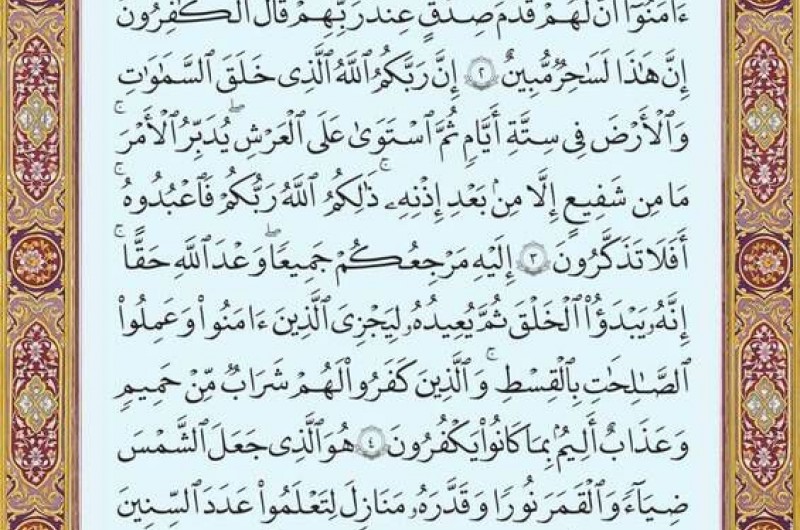 ءَامَنُوٓا۟ أَنَّ لَهُمْ قَدَمَ صِدْقٍ عِندَ رَبِّهِمْ قَالَ ٱلْكَٰفِرُونَ
إِنَّ هَٰذَا لَسَٰحِرٌ مُّبِينٌ ٢ إِنَّ رَبَّكُمُ ٱللَّهُ ٱلَّذِى خَلَقَ ٱلسَّمَٰوَٰتِ
وَٱلْأَرْضَ فِى سِتَّةِ أَيَّامٍ ثُمَّ ٱسْتَوَىٰ عَلَى ٱلْعَرْشِ ۖ يُدَبِّرُ ٱلْأَمْرَ ۖ
مَا مِن شَفِيعٍ إِلَّا مِنۢ بَعْدِ إِذْنِهِۦ ۚ ذَٰلِكُمُ ٱللَّهُ رَبُّكُمْ فَٱعْبُدُوهُ ۚ
أَفَلَا تَذَكَّرُونَ ٣ إِلَيْهِ مَرْجِعُكُمْ جَمِيعًا ۖ وَعْدَ ٱللَّهِ حَقًّا ۚ
إِنَّهُۥ يَبْدَؤُا۟ ٱلْخَلْقَ ثُمَّ يُعِيدُهُۥ لِيَجْزِىَ ٱلَّذِينَ ءَامَنُوا۟ وَعَمِلُوا۟
ٱلصَّٰلِحَٰتِ بِٱلْقِسْطِ ۚ وَٱلَّذِينَ كَفَرُوا۟ لَهُمْ شَرَابٌ مِّنْ حَمِيمٍ
وَعَذَابٌ أَلِيمٌۢ بِمَا كَانُوا۟ يَكْفُرُونَ ٤ هُوَ ٱلَّذِى جَعَلَ ٱلشَّمْسَ
ضِيَآءً وَٱلْقَمَرَ نُورًا وَقَدَّرَهُۥ مَنَازِلَ لِتَعْلَمُوا۟ عَدَدَ ٱلسِّنِينَ